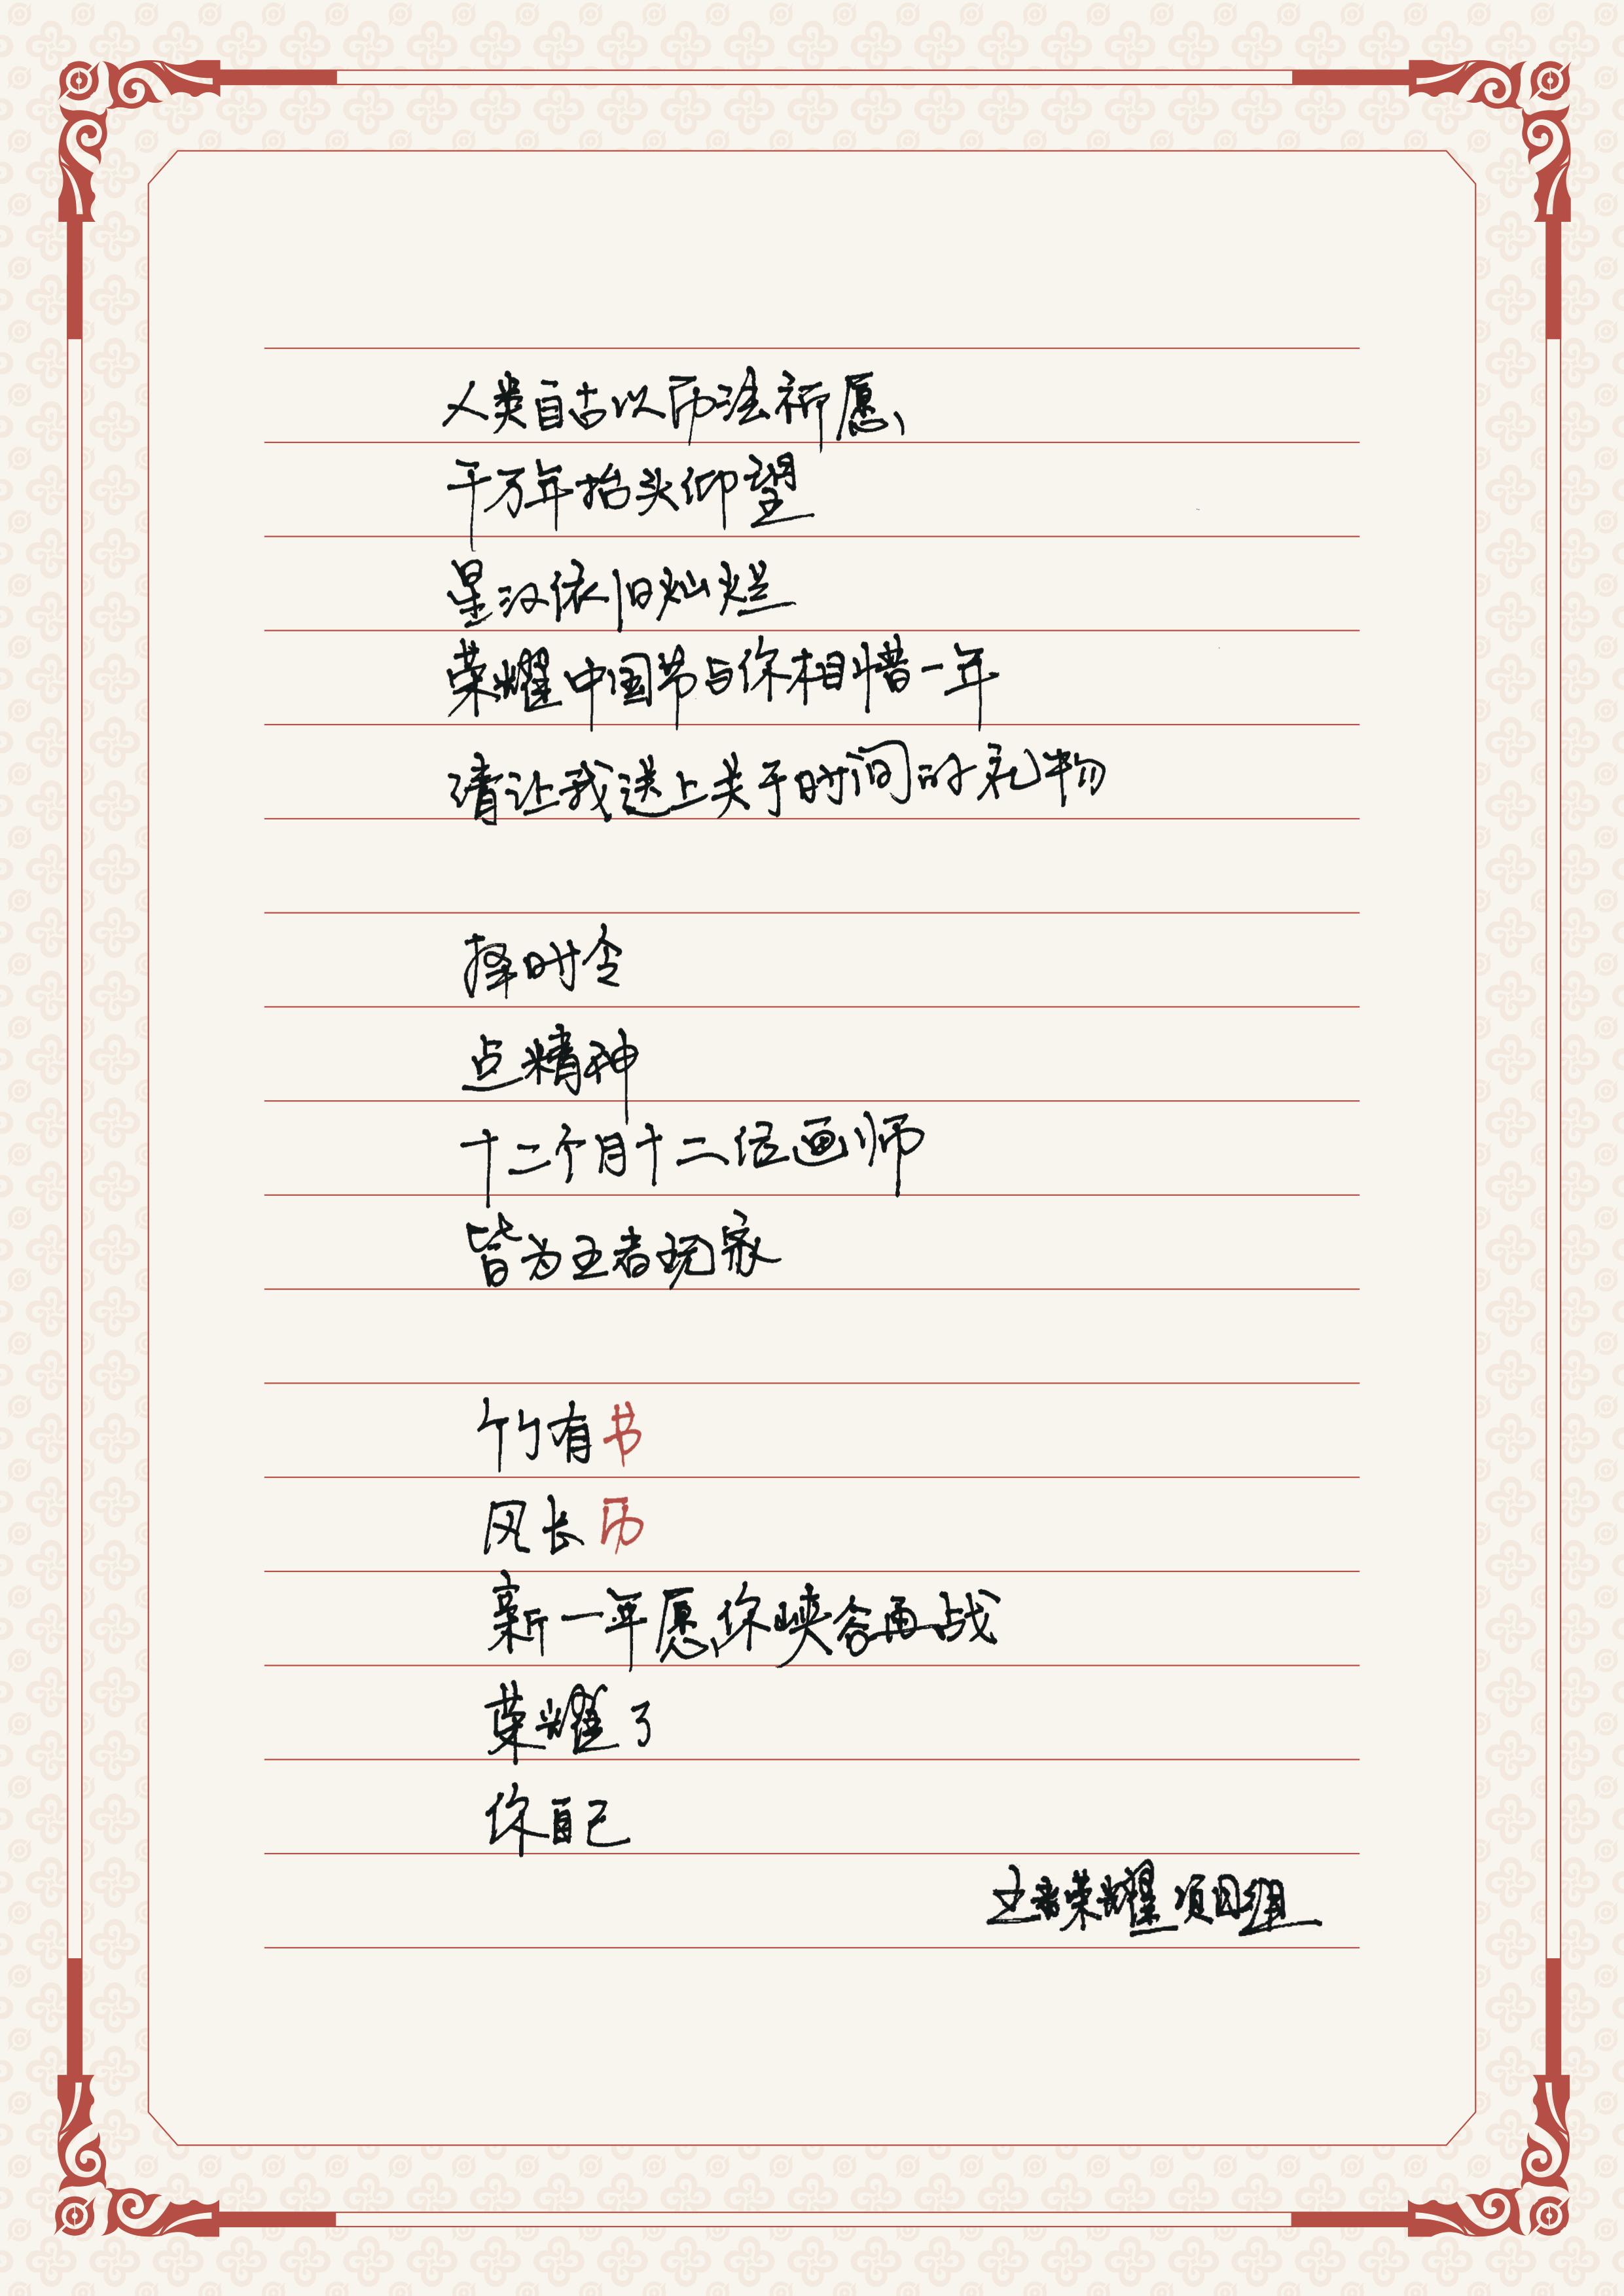 人类自古以历法祈愿、
千万年抬头仰望
星汉依旧灿烂
荣耀中国节与你相惜一年
请让我送上关于时间的礼物
择时令
点精神
十二个月十二位画师
皆为王者玩家
竹有书
风长历
新一年愿你峡谷再战
荣耀了
你自己
王者荣耀项目组